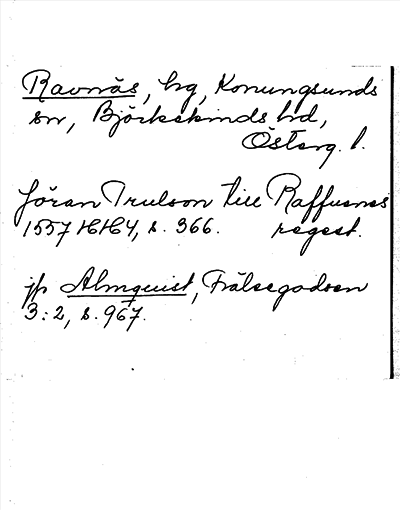 Ravnäs, hg, Konungsunds
sn, Björkekinds hd,
Österg. l.
Jöran Trulson till Raffuenes
1557 HH4, s. 366. regest.
jfr Almquist, Frälsegodsen
3:2, s. 967.